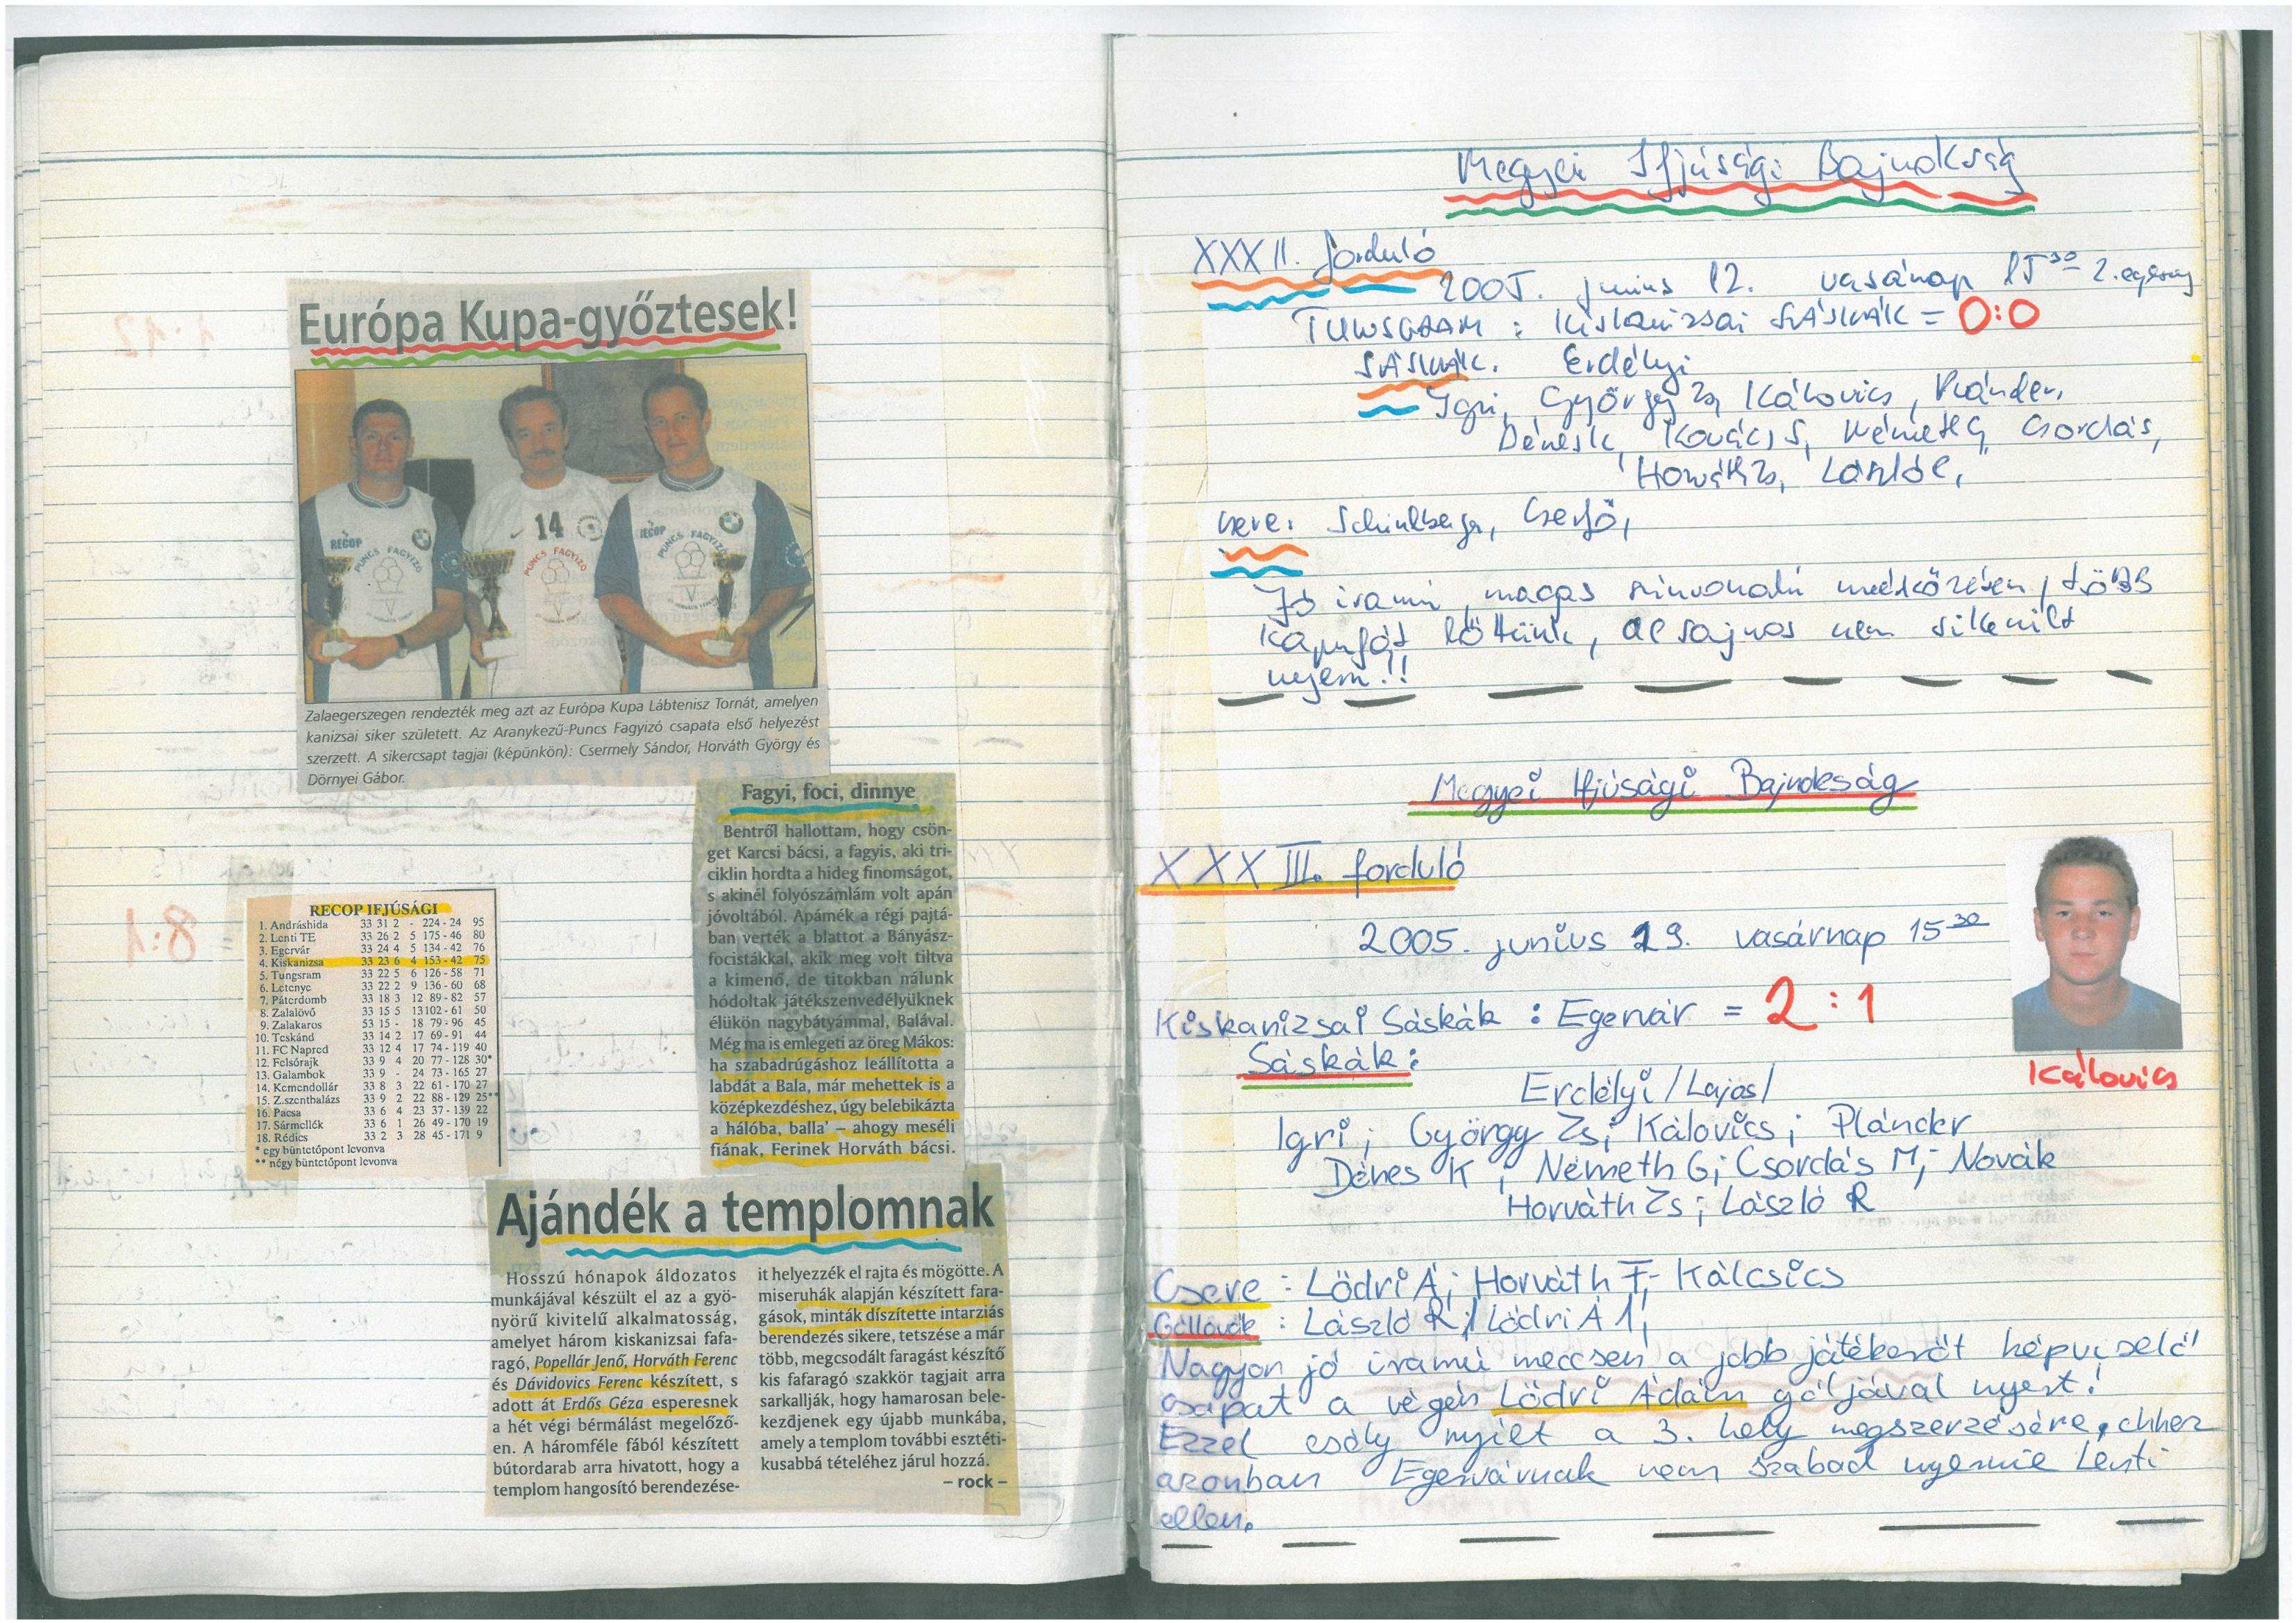 Európa Kupa-győztesek!
RECOP
PUNCS FAGYIZÓ
14
PUNCS FAGYIZÓ
RECOP
PUNCS FAGYIZÓ
Zalaegerszegen rendezték meg azt az Európa Kupa Lábtenisz Tornát, amelyen
kanizsai siker született. Az Aranykezű-Puncs Fagyizó csapata első helyezést
szerzett. A sikercsapt tagjai (képünkön): Csermely Sándor, Horváth György és
Dörnyei Gábor.
Fagyi, foci, dinnye
Bentről hallottam, hogy csön-
get Karcsi bácsi, a fagyis, aki tri-
ciklin hordta a hideg finomságot,
s akinél folyószámlám volt apán
jóvoltából. Apámék a régi pajtá-
ban verték a blattot a Bányász-
focistákkal, akik meg volt tiltva
a kimenő, de titokban nálunk
hódoltak játékszenvedélyüknek
élükön nagybátyámmal, Balával.
Még ma is emlegeti az öreg Mákos:
ha szabadrúgáshoz leállította a
labdát a Bala, már mehettek is a
középkezdéshez, úgy belebikázta
a hálóba, balla' – ahogy meséli
fiának, Ferinek Horváth bácsi.
RECOP IFJÚSÁGI
1. Andráshida 33 31 2 - 224 - 24 95
2. Lenti TE 33 26 2 5 175 - 46 80
3. Egervár 33 24 4 5 134 - 42 76
4. Kiskanizsa 33 23 6 4 153 - 42 75
5. Tungsram 33 22 5 6 126 - 58 71
6. Letenye 33 22 2 9 136 - 60 68
7. Páterdomb 33 18 3 12 89 - 82 57
8. Zalalövő 33 15 5 13 102 - 61 50
9. Zalakaros 53 15 - 18 79 - 96 45
10. Teskánd 33 14 2 17 69 - 91 44
11. FC Napred 33 12 4 17 74 - 119 40
12. Felsőrajk 33 9 4 20 77 - 128 30*
13. Galambok 33 9 - 24 73 - 165 27
14. Kemendollár 33 8 3 22 61 - 170 27
15. Z.szentbalázs 33 9 2 22 88 - 129 25**
16. Pacsa 33 6 4 23 37 - 139 22
17. Sármellék 33 6 1 26 49 - 170 19
18. Rédics 33 2 3 28 45 - 171 9
* egy büntetőpont levonva
** négy büntetőpont levonva
Ajándék a templomnak
Hosszú hónapok áldozatos
munkájával készült el az a gyö-
nyörű kivitelű alkalmatosság,
amelyet három kiskanizsai fafa-
ragó, Popellár Jenő, Horváth Ferenc
és Dávidovics Ferenc készített, s
adott át Erdős Géza esperesnek
a hét végi bérmálást megelőző-
en. A háromféle fából készített
bútordarab arra hivatott, hogy a
templom hangosító berendezése-
it helyezzék el rajta és mögötte. A
miseruhák alapján készített fara-
gások, minták díszítette intarziás
berendezés sikere, tetszése a már
több, megcsodált faragást készítő
kis fafaragó szakkör tagjait arra
sarkallják, hogy hamarosan bele-
kezdjenek egy újabb munkába,
amely a templom további esztéti-
kusabbá tételéhez járul hozzá.
– rock –
Megyei Ifjúsági Bajnokság
XXXII. forduló
2005. június 12. vasánap 15 30
TUNSGRAM : Kiskanizsai SÁSKÁK = 0:0
SÁSKÁK. Erdélyi
Igri, György Zs, Kálovics, Plánder,
Dénes K, Kovács S, Németh G, Csordás,
Horváth Zs, László R,
csere: Cserfő,
Jó iramú, magas színvonalú mérkőzésen, több
kapufát lőttünk, de sajnos nem sikerült
nyerni!!
Megyei Ifjúsági Bajnokság
XXXIII. forduló
2005. június 19. vasárnap 15 30
Kiskanizsai Sáskák : Egervár = 2 : 1
Sáskák:
Kálovics
Erdélyi /Lajos/
Igri; György Zs; Kálovics; Plánder
Dénes K; Németh G; Csordás M; Novák
Horváth Zs; László R
Csere : Lödri Á; Horváth F; Kálcsics
Góllövők : László R 1 Lödri Á 1,
Nagyon jó iramú meccsen a jobb játékerőt képviselő
csapat a végén Lödri Ádám góljával nyert!
Ezzel esély nyílt a 3. hely megszerzésére, ehhez
azonban Egervárnak nem szabad nyernie Lenti
ellen.